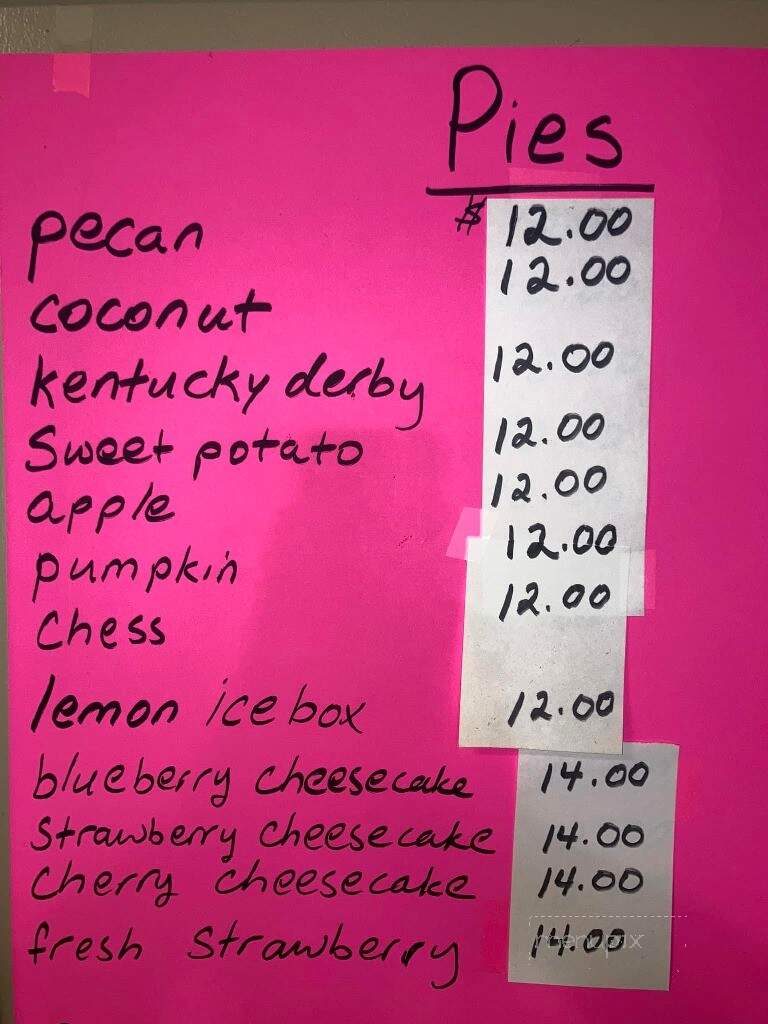 Pies
pecan $ 12.00
coconut 12.00
kentucky derby 12.00
Sweet potato 12.00
apple 12.00
pumpkin 12.00
Chess 12.00
lemon ice box 12.00
blueberry cheesecake 14.00
Strawberry cheesecake 14.00
Cherry cheesecake 14.00
fresh Strawberry 14.00
menupix